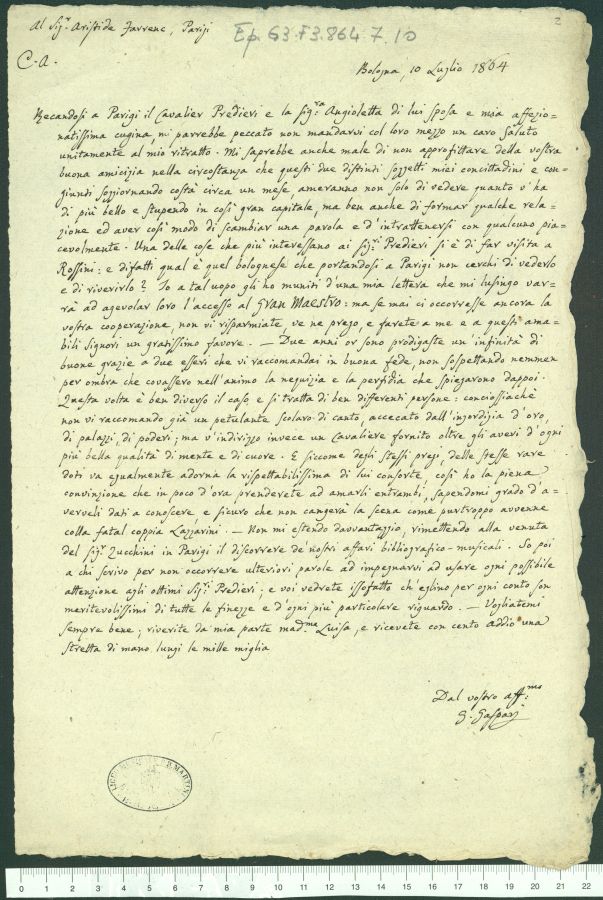 2
Al Sig.r Aristide Farrenc, Parigi
Ep. G3.F3.864.7.10
C. A.
Bologna, 10 Luglio 1864
Recandosi a Parigi il Cavalier Predieri e la Sig.ra Angioletta di lui sposa e mia affezio=
natissima cugina, mi parrebbe peccato non mandarvi col loro mezzo un caro saluto
unitamente al mio ritratto. Mi saprebbe anche male di non approfittare della vostra
buona amicizia nella circostanza che questi due distinti soggetti miei concittadini e con=
giunti soggiornando costà circa un mese, ameranno non solo di vedere quanto v'ha
di più bello e stupendo in così gran capitale, ma ben anche di formar qualche rela=
zione ed aver così modo di scambiar una parola e d'intrattenersi con qualcuno pia=
cevolmente. Una delle cose che più interessano ai Sig.i Predieri si è di far visita a
Rossini: e difatti qual è quel bolognese che portandosi a Parigi non cerchi di vederlo
e di riverirlo? Io a tal uopo gli ho muniti d'una mia lettera che mi lusingo var=
rà ad agevolar loro l'accesso al Gran Maestro: ma se mai ci occorresse ancora la
vostra cooperazione, non vi risparmiate, ve ne prego, e farete a me e a questi ama=
bili signori un gratissimo favore. — Due anni or sono prodigaste un'infinità di
buone grazie a due esseri che vi raccomandai in buona fede, non sospettando nemmen
per ombra che covassero nell'animo la nequizia e la perfidia che spiegarono dappoi.
Questa volta è ben diverso il caso, e si tratta di ben differenti persone: conciossiachè
non vi raccomando già un petulante scolaro di canto, accecato dall'ingordigia d'oro,
di palazzi, di poderi; ma v'indirizzo invece un Cavaliere fornito oltre gli averi d'ogni
più bella qualità di mente e di cuore. E siccome degli stessi pregi, delle stesse rare
doti va egualmente adorna la rispettabilissima di lui consorte, così ho la piena
convinzione che in poco d'ora prenderete ad amarli entrambi, sapendomi grado d'a=
verveli dati a conoscere, e sicuro che non cangerà la scena come purtroppo avvenne
colla fatal coppia Lazzarini. — Non mi estendo davvantaggio, rimettendo alla venuta
del Sig.r Zucchini in Parigi il discorrere de' nostri affari bibliografico-musicali. So poi
a chi scrivo per non occorrere ulteriori parole ad impegnarvi ad usare ogni possibile
attenzione agli ottimi Sig.i Predieri; e voi vedrete issofatto ch'eglino per ogni conto son
meritevolissimi di tutte le finezze e d'ogni più particolare riguardo. — Vogliatemi
sempre bene; riverite da mia parte mad.ma Luisa, e ricevete con cento addio una
stretta di mano lungi le mille miglia
Dal vostro aff.mo
G. Gaspari
0 1 2 3 4 5 6 7 8 9 10 11 12 13 14 15 16 17 18 19 20 21 22